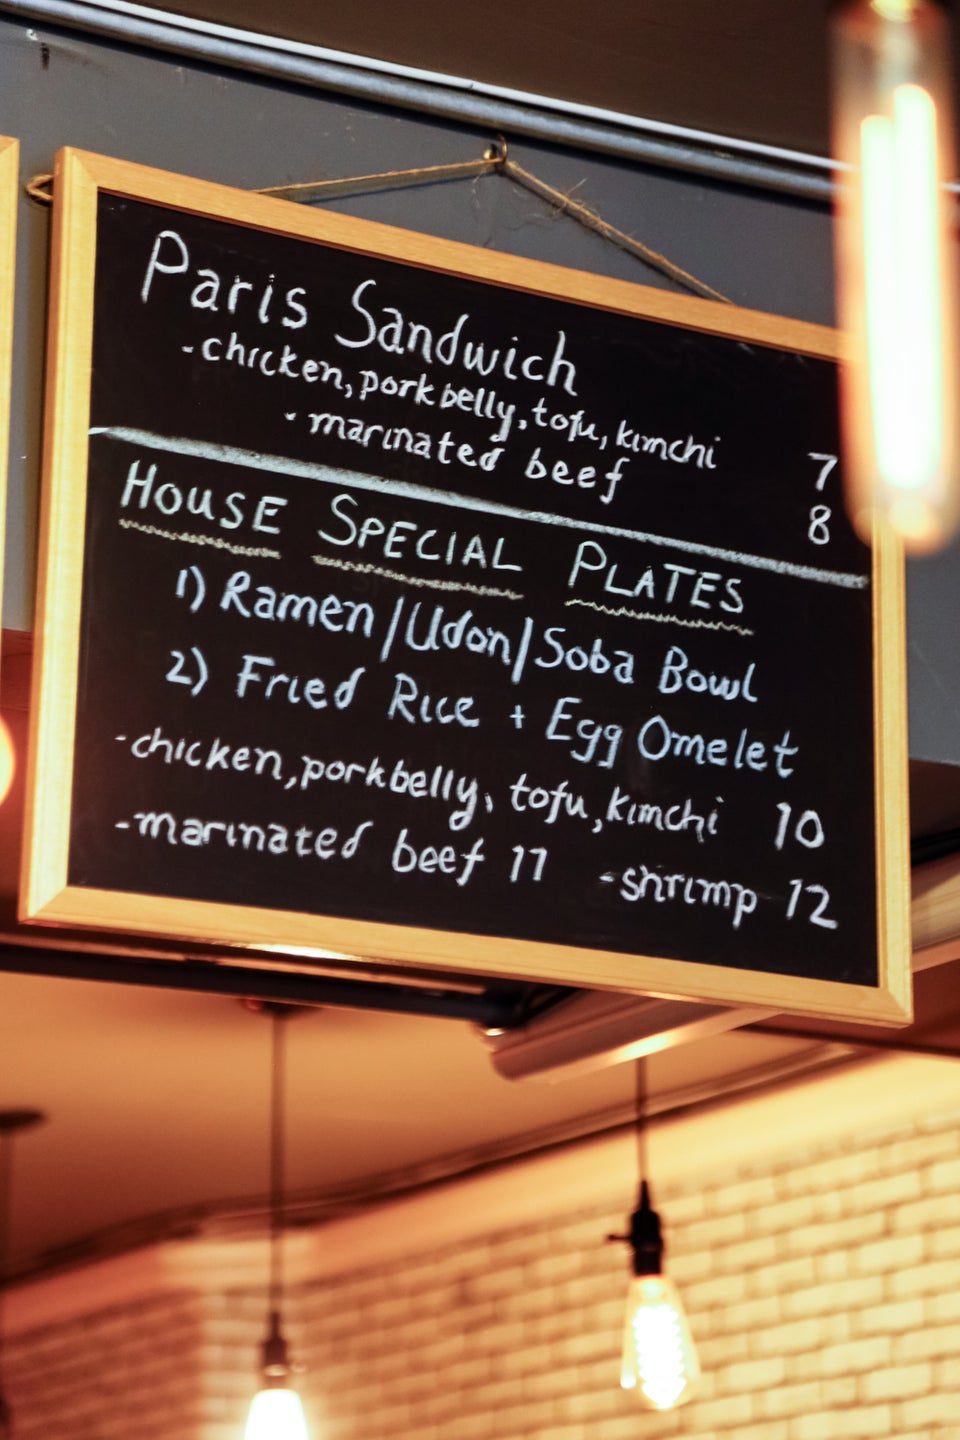 Paris Sandwich
-chicken, pork belly, tofu, kimchi 7
-marinated beef 8
HOUSE SPECIAL PLATES
1) Ramen/Udon/Soba Bowl
2) Fried Rice + Egg Omelet
-chicken, pork belly, tofu, kimchi 10
-marinated beef 11 -shrimp 12